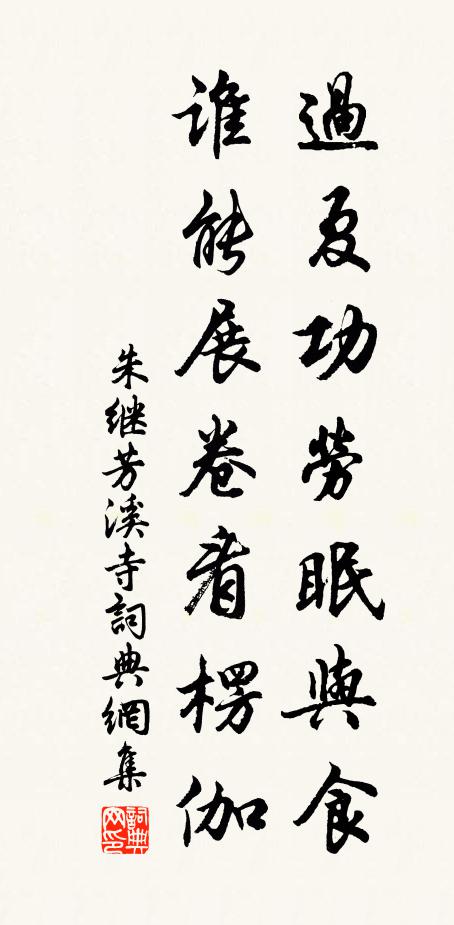 過夏功勞眠與食
誰能展卷看楞伽
朱继芳溪寺詞典網集
詞典网印